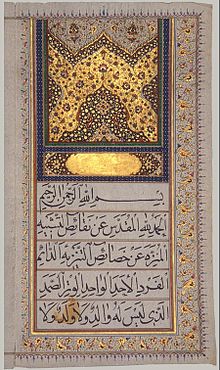 بسم الله الرحمن الرحيم
الحمد لله المقدس عن نقائص التشبيه
المنزه عن خصائص التنزيه الدائم
الفرد الأحد الواحد الوتر الصمد
الذي ليس له والد ولا ولد ولا